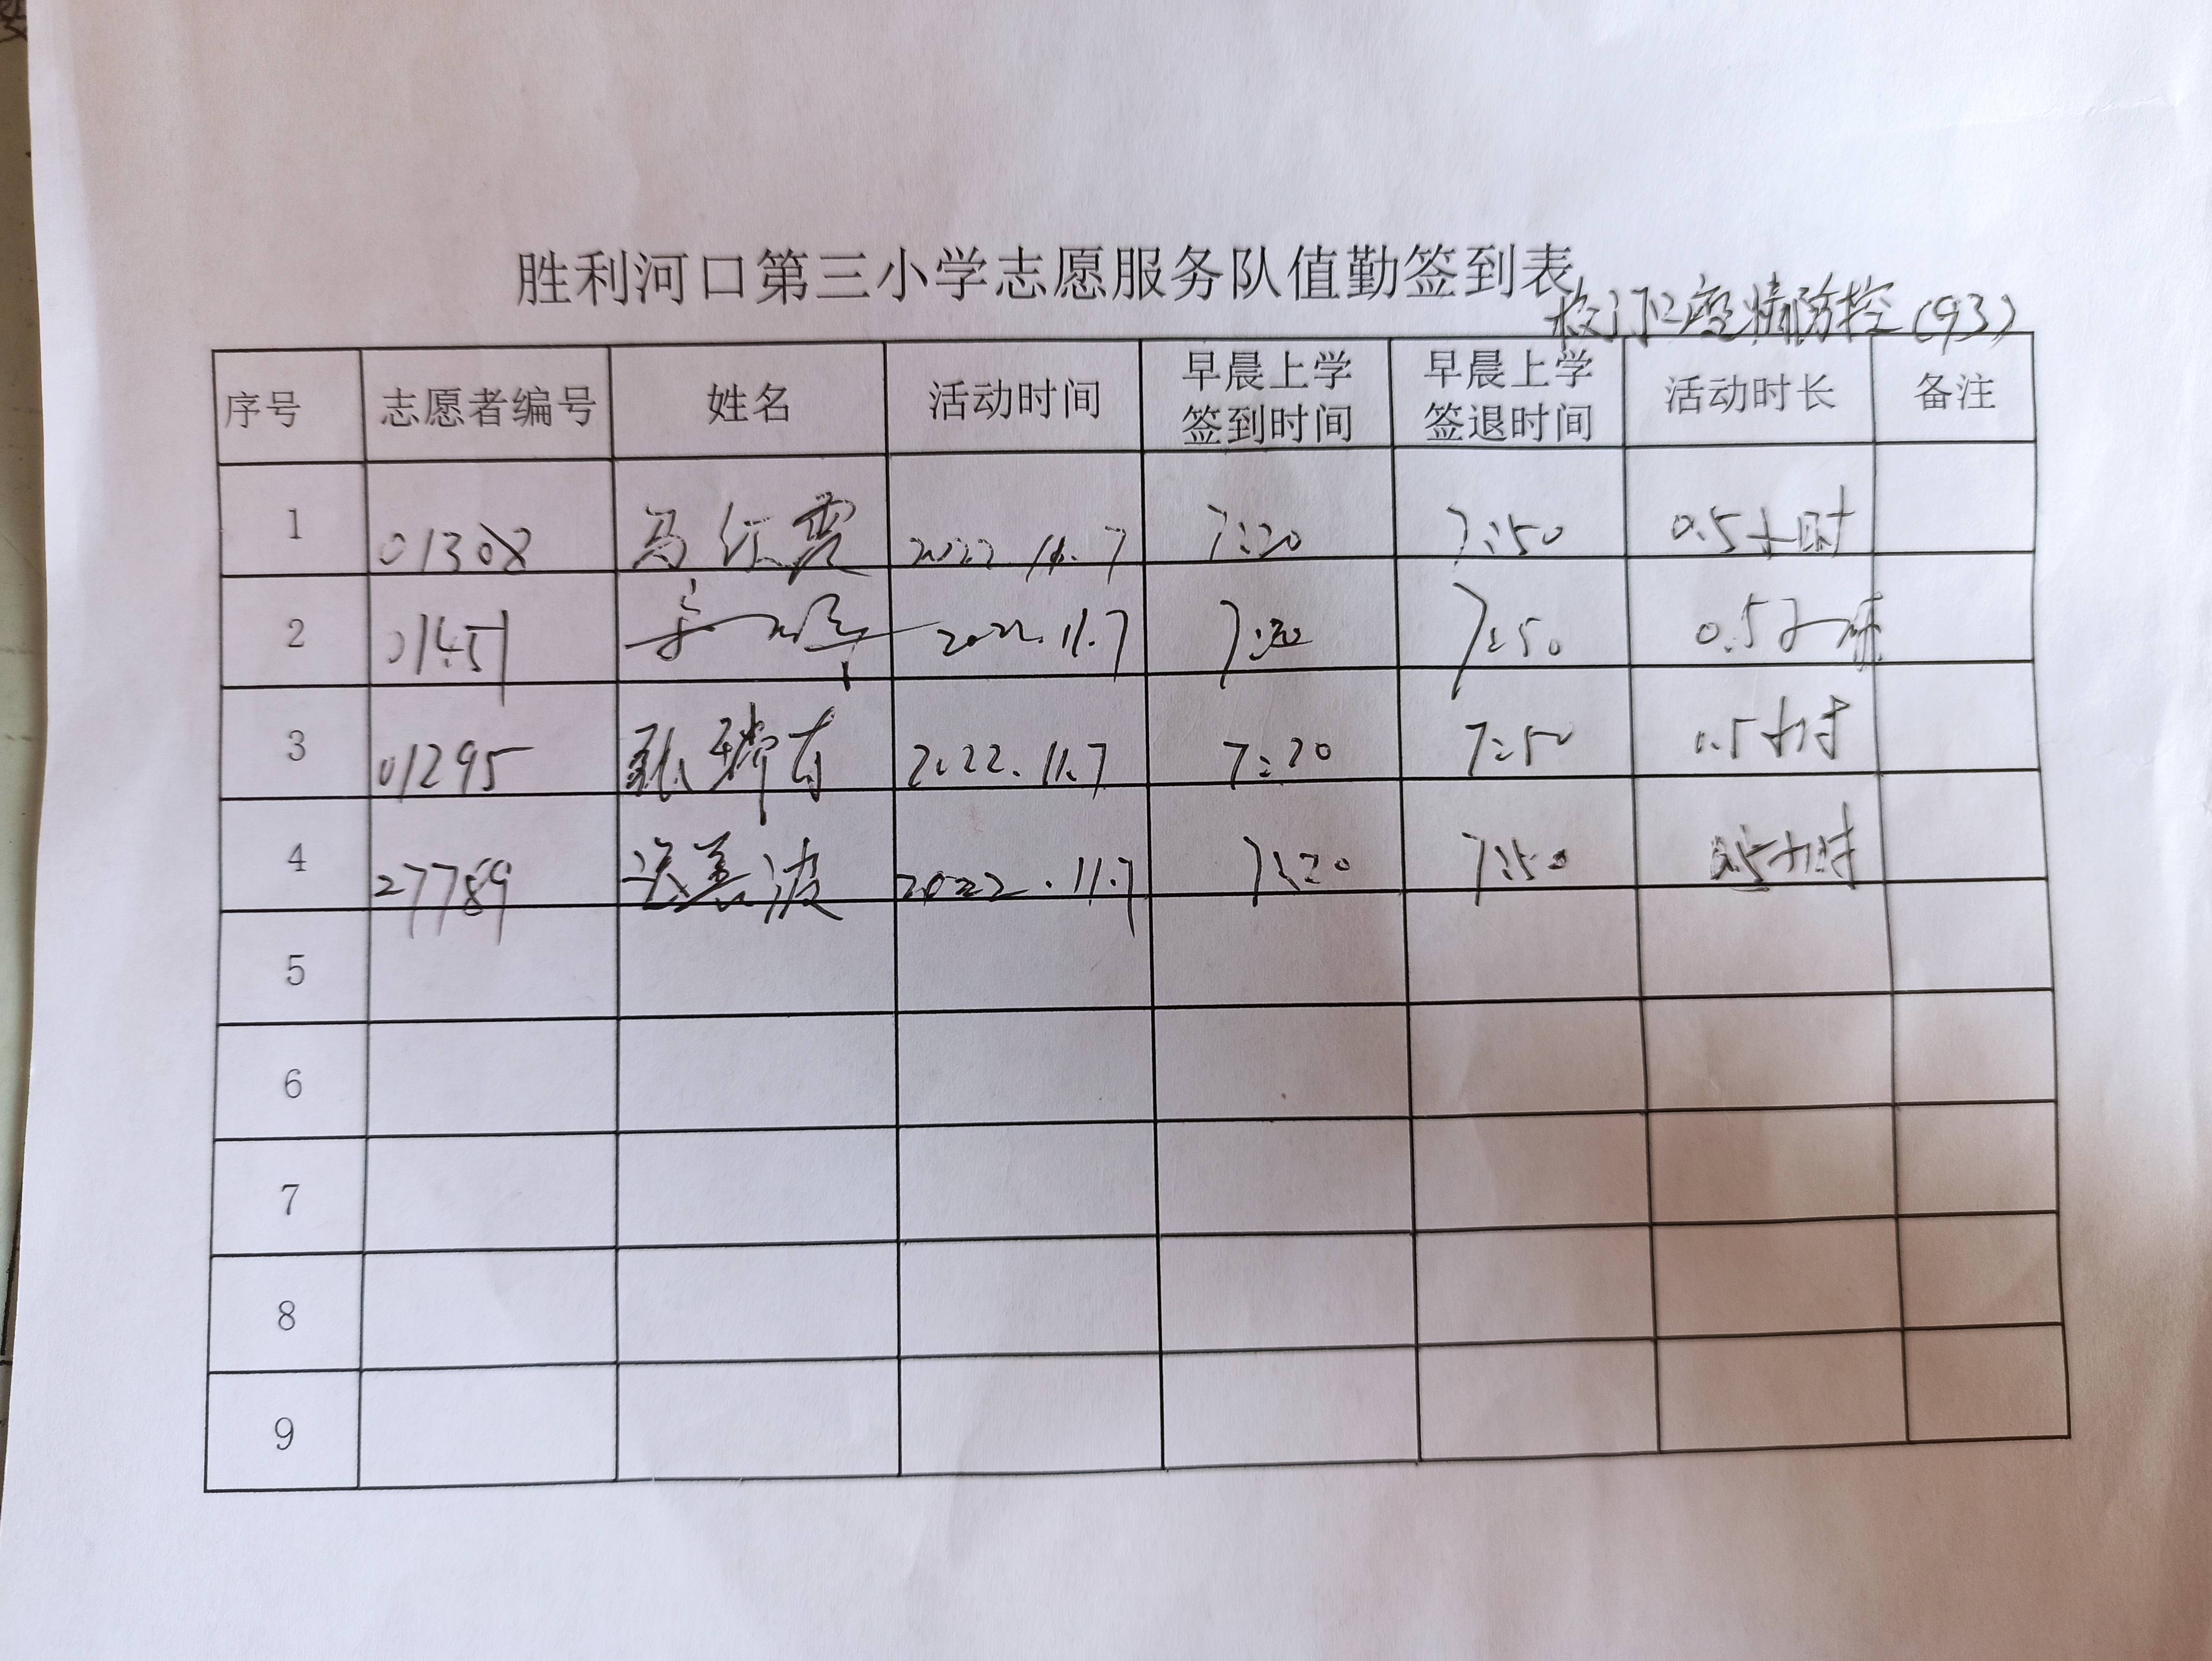 胜利河口第三小学志愿服务队值勤签到表
校门口疫情防控(93)
序号 志愿者编号 姓名 活动时间 早晨上学签到时间 早晨上学签退时间 活动时长 备注
1 01308 马红霞 2022.11.7 7:20 7:50 0.5小时
2 01451 2022.11.7 7:20 7:50 0.5小时
3 01295 2022.11.7 7:20 7:50 0.5小时
4 27789 2022.11.7 7:20 7:50 0.5小时
5
6
7
8
9